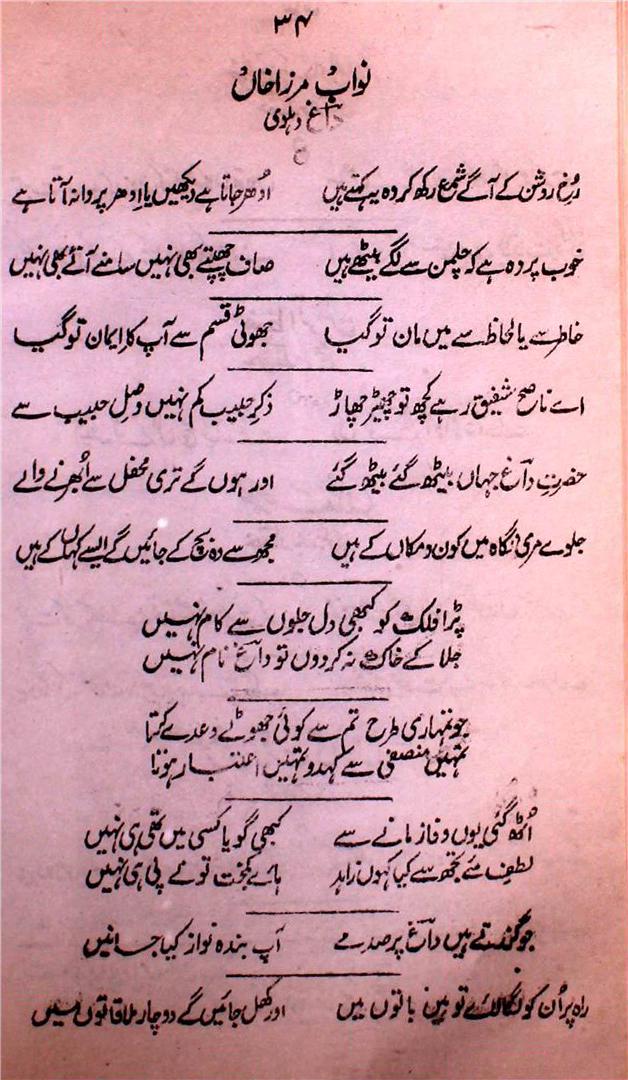 ۳۴
نواب مرزا خاں
داغ دہلوی
رُخِ روشن کے آگے شمع رکھ کر وہ یہ کہتے ہیں اُدھر جاتا ہے دیکھیں یا اِدھر پروانہ آتا ہے
خوب پردہ ہے کہ چلمن سے لگے بیٹھے ہیں صاف چھپتے بھی نہیں سامنے آتے بھی نہیں
خاطر سے یا لحاظ سے میں مان تو گیا جھوٹی قسم سے آپ کا ایمان تو گیا
اے ناصح شفیق رہے کچھ تو چھیڑ چھاڑ ذکرِ حبیب کم نہیں وصلِ حبیب سے
حضرتِ داغ جہاں بیٹھ گئے بیٹھ گئے اور ہوں گے تری محفل سے اُبھرنے والے
جلوے مری نگاہ میں کون و مکاں کے ہیں مجھ سے وہ بچ کے جائیں گے ایسے کہاں کے ہیں
پڑا فلک کو کبھی دل جلوں سے کام نہیں
جلا کے خاک نہ کردوں تو داغ نام نہیں
جو تمہاری طرح تم سے کوئی جھوٹے وعدے کرتا
تمہیں منصفی سے کہدو تمہیں اعتبار ہوتا
اُٹھ گئی یوں وفا زمانے سے کبھی گویا کسی میں تھی ہی نہیں
لطفِ مئے تجھ سے کیا کہوں زاہد ہائے کمبخت تونے پی ہی نہیں
جو گزرتے ہیں داغ پر صدمے آپ بندہ نواز کیا جانیں
راہ پر اُن کو لگا لائے تو ہیں باتوں میں اور کھل جائیں گے دو چار ملاقاتوں میں